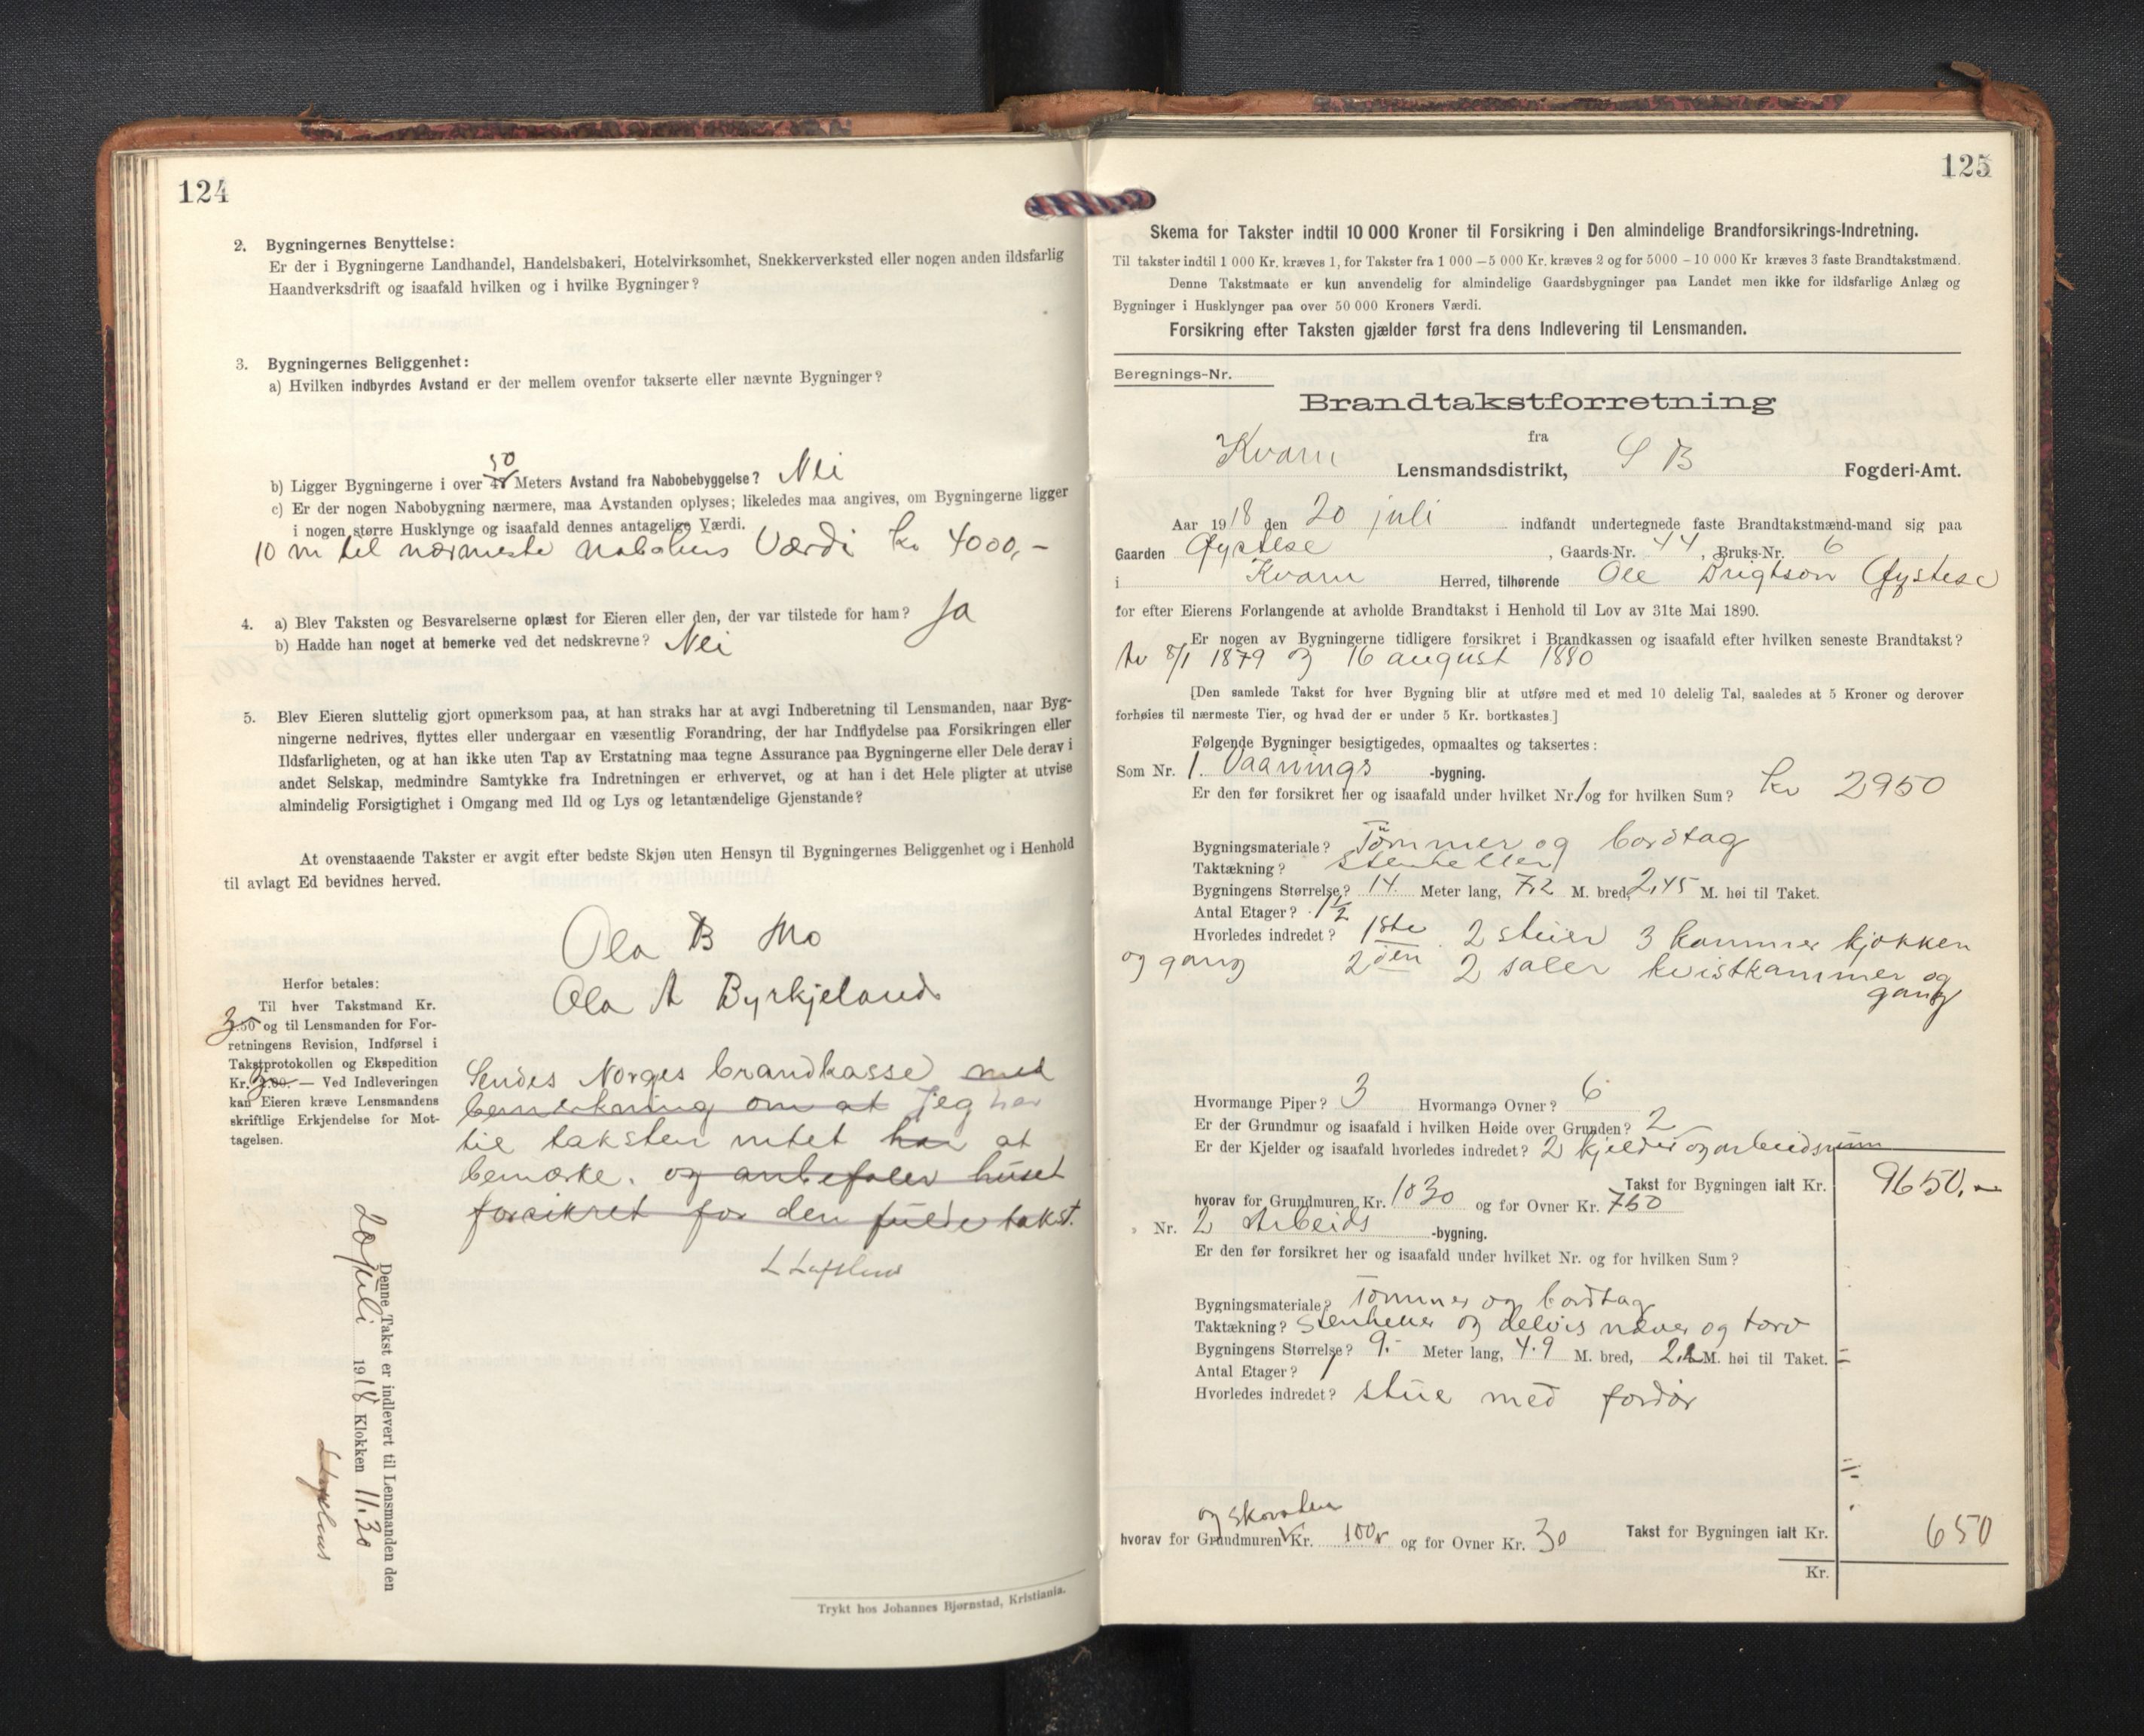 124
2. Bygningernes Benyttelse:
Er der i Bygningerne Landhandel, Handelsbakeri, Hotelvirksomhet, Snekkerverksted eller nogen anden ildsfarlig
Haandverksdrift og isaafald hvilken og i hvilke Bygninger?
3. Bygningernes Beliggenhet:
a) Hvilken indbyrdes Avstand er der mellem ovenfor takserte eller nævnte Bygninger?
50
b) Ligger Bygningerne i over Meters Avstand fra Nabobebyggelse? Nei
c) Er der nogen Nabobygning nærmere, maa Avstanden oplyses; likeledes maa angives, om Bygningerne ligger
i nogen større Husklynge og isaafald dennes antagelige Værdi.
10 m til nærmeste nabohus Værdi kr 4000,-
4. a) Blev Taksten og Besvarelserne oplæst for Eieren eller den, der var tilstede for ham? Ja
b) Hadde han noget at bemerke ved det nedskrevne? Nei
5. Blev Eieren sluttelig gjort opmerksom paa, at han straks har at avgi Indberetning til Lensmanden, naar Byg-
ningerne nedrives, flyttes eller undergaar en væsentlig Forandring, der har Indflydelse paa Forsikringen eller
Ildsfarligheten, og at han ikke uten Tap av Erstatning maa tegne Assurance paa Bygningerne eller Dele derav i
andet Selskap, medmindre Samtykke fra Indretningen er erhvervet, og at han i det Hele pligter at utvise
almindelig Forsigtighet i Omgang med Ild og Lys og letantændelige Gjenstande?
At ovenstaaende Takster er avgit efter bedste Skjøn uten Hensyn til Bygningernes Beliggenhet og i Henhold
til avlagt Ed bevidnes herved.
Ola B Mo
Ola A Byrkjeland
Herfor betales:
Til hver Takstmand Kr.
3 .50 og til Lensmanden for For-
retningens Revision, Indførsel i
Takstprotokollen og Ekspedition
Kr. 3 .00. — Ved Indleveringen
kan Eieren kræve Lensmandens
skriftlige Erkjendelse for Mot-
tagelsen.
Sendes Norges brandkasse med
bemerkning om at jeg har
til taksten intet har at
bemerke. og anbefaler huset
forsikret for den fulde takst.
Denne Takst er indlevert til Lensmanden den
20 juli 1918 Klokken 11.30
Trykt hos Johannes Bjørnstad, Kristiania.
125
Skema for Takster indtil 10 000 Kroner til Forsikring i Den almindelige Brandforsikrings-Indretning.
Til takster indtil 1 000 Kr. kræves 1, for Takster fra 1 000 – 5 000 Kr. kræves 2 og for 5000 – 10 000 Kr kræves 3 faste Brandtakstmænd.
Denne Takstmaate er kun anvendelig for almindelige Gaardsbygninger paa Landet men ikke for ildsfarlige Anlæg og
Bygninger i Husklynger paa over 50 000 Kroners Værdi.
Forsikring efter Taksten gjælder først fra dens Indlevering til Lensmanden.
Beregnings-Nr.
Brandtakstforretning
fra
Kvam Lensmandsdistrikt, S B Fogderi-Amt.
Aar 1918 den 20 juli indfandt undertegnede faste Brandtakstmænd-mand sig paa
Gaarden Øystese, Gaards-Nr. 44, Bruks-Nr. 6
i Kvam Herred, tilhørende Ole Brigtson Øystese
for efter Eierens Forlangende at avholde Brandtakst i Henhold til Lov av 31te Mai 1890.
Er nogen av Bygningerne tidligere forsikret i Brandkassen og isaafald efter hvilken seneste Brandtakst?
Av 8/1 1879 og 16 august 1880
[Den samlede Takst for hver Bygning blir at utføre med et med 10 delelig Tal, saaledes at 5 Kroner og derover
forhøies til nærmeste Tier, og hvad der er under 5 Kr. bortkastes.]
Følgende Bygninger besigtigedes, opmaaltes og taksertes:
Som Nr. 1. Vaanings -bygning.
Er den før forsikret her og isaafald under hvilket Nr. 1 og for hvilken Sum? Kr 2950
Bygningsmateriale? Tømmer og bordtag
Taktækning? Stenheller
Bygningens Størrelse? 14 Meter lang, 7,2 M. bred, 2,45 M. høi til Taket.
Antal Etager? 1 1/2
Hvorledes indredet? 1ste 2 stuer 3 kammer kjøkken
og gang 2den 2 saler kvistkammer og
gang
Hvormange Piper? 3 Hvormange Ovner? 6
Er der Grundmur og isaafald i hvilken Høide over Grunden? 2
Er der Kjelder og isaafald hvorledes indredet? 2 kjelder og arbeidsrum
Takst for Bygningen ialt Kr. 9650.-
hvorav for Grundmuren Kr. 1030 og for Ovner Kr. 750
Nr. 2 Arbeids -bygning.
Er den før forsikret her og isaafald under hvilket Nr. og for hvilken Sum?
Bygningsmateriale? Tømmer og bordtag
Taktækning? Stenheller og delvis næver og torv
Bygningens Størrelse? 9. Meter lang, 4.9 M. bred, 2.2 M. høi til Taket.
Antal Etager? 1
Hvorledes indredet? stue med fordør
og skorsten
hvorav for Grundmuren Kr. 100 og for Ovner Kr. 30 Takst for Bygningen ialt Kr. 650
Kr.